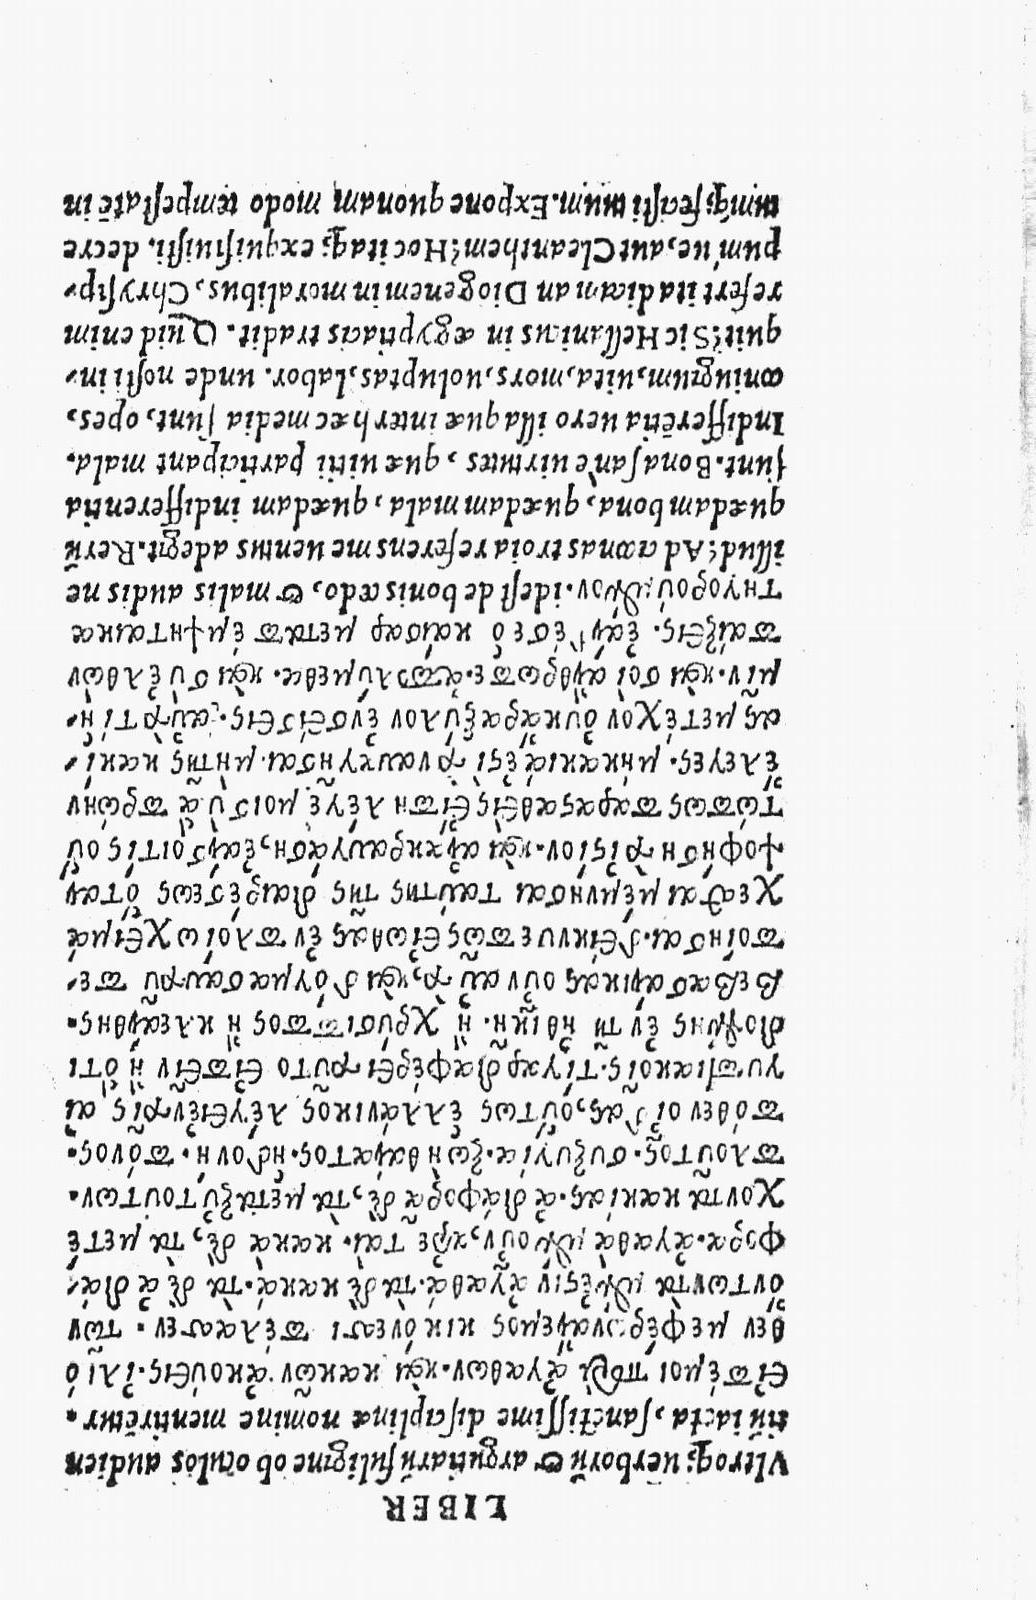 LIBER
Vltroq; uerborū & argutiarū fuligine ob oculos audien
tiū iacta, sanctissime disciplinæ nomine mentirētur.
Εἰπέ μοι περὶ ἀγαθων·καὶ κακῶν.ἀκούεις·ἰλιό
θεν με φέρων ἄνεμος κικόνεσσι πέλασσεν. τῶν
ὄντων τὰ μέν ἐστιν ἀγαθά·τὰ δὲ κακά·τὰ δὲ ἀδιά-
φορα·ἀγαθὰ μὲν οὖν, ἀρεταί·κακὰ δὲ, τὰ μετέ
χοντα κακίας·ἀδιάφορα δὲ, τὰ μεταξὺ τούτων.
πλοῦτος·συζυγία·ζωὴ θάνατος·ἡδονή·πόνος.
πόθεν οἶδας, οὕτως ἑλλάνικος λέγει ἐν τοῖς αἰ
γυπτιακοῖς·τί γὰρ διαφέρει τοῦτο εἰπεῖν ἢ ὅτι
διογένης ἐν τῇ ἠθικῇ·ἢ χρύσιππος ἢ κλεάνθης.
βεβασάνικας οὖν αὐτῶ, καὶ δόγμα σαυτοῦ πε-
ποίησαι·δείκνυε πῶς εἴωθας ἐν πλοίῳ χειμά
ζεσθαι μέμνησαι ταύτης τῆς διαιρέσεως ὅταν
ψοφήσῃ τὸ ἱστίον·καὶ ἀνακραυγάσῃ, ἐάν σοί τις οὕ
τώ πως παραστὰς εἴπῃ λέγε μοι σὺ ἃ πρώην
ἔλεγες·μὴ κακία ἐστὶ τὸ ναυαγῆσαι·μή τῆς κακί-
ας μετέχον οὐκ ἄρα ξύλον ἐνσείσεις·αὐτῷ τί ἡ
μῖν·καὶ σοὶ ἄνθρωπε·ἀπωλύμεθα·καὶ σὺ ἐλθὼν
παίζεις·ἐὰν δέ σε ὁ καῖσαρ μεταπέμψηται κα
τηγορούμενον.idest de bonis cædo, & malis audis ne
illud; Ad ciconas troia referens me uentus adegit. Rerū
quædam bona, quædam mala, quædam indifferentia
sunt. Bona sanè uirtutes, quæ uitii participant mala.
Indifferētia uero illa quæ inter hæc media sunt, opes,
coniugium, uita, mors, uoluptas, Labor. unde nosti in-
quit? Sic Hellanicus in ægyptiacis tradit. Quid enim
refert ita dicam an Diogenem in moralibus, Chrysip-
pum'ue, aut Cleanthem? Hoc itaq; exquisiuisti. decre
tumq; feasti tuum. Expone quonam modo tempestatē in